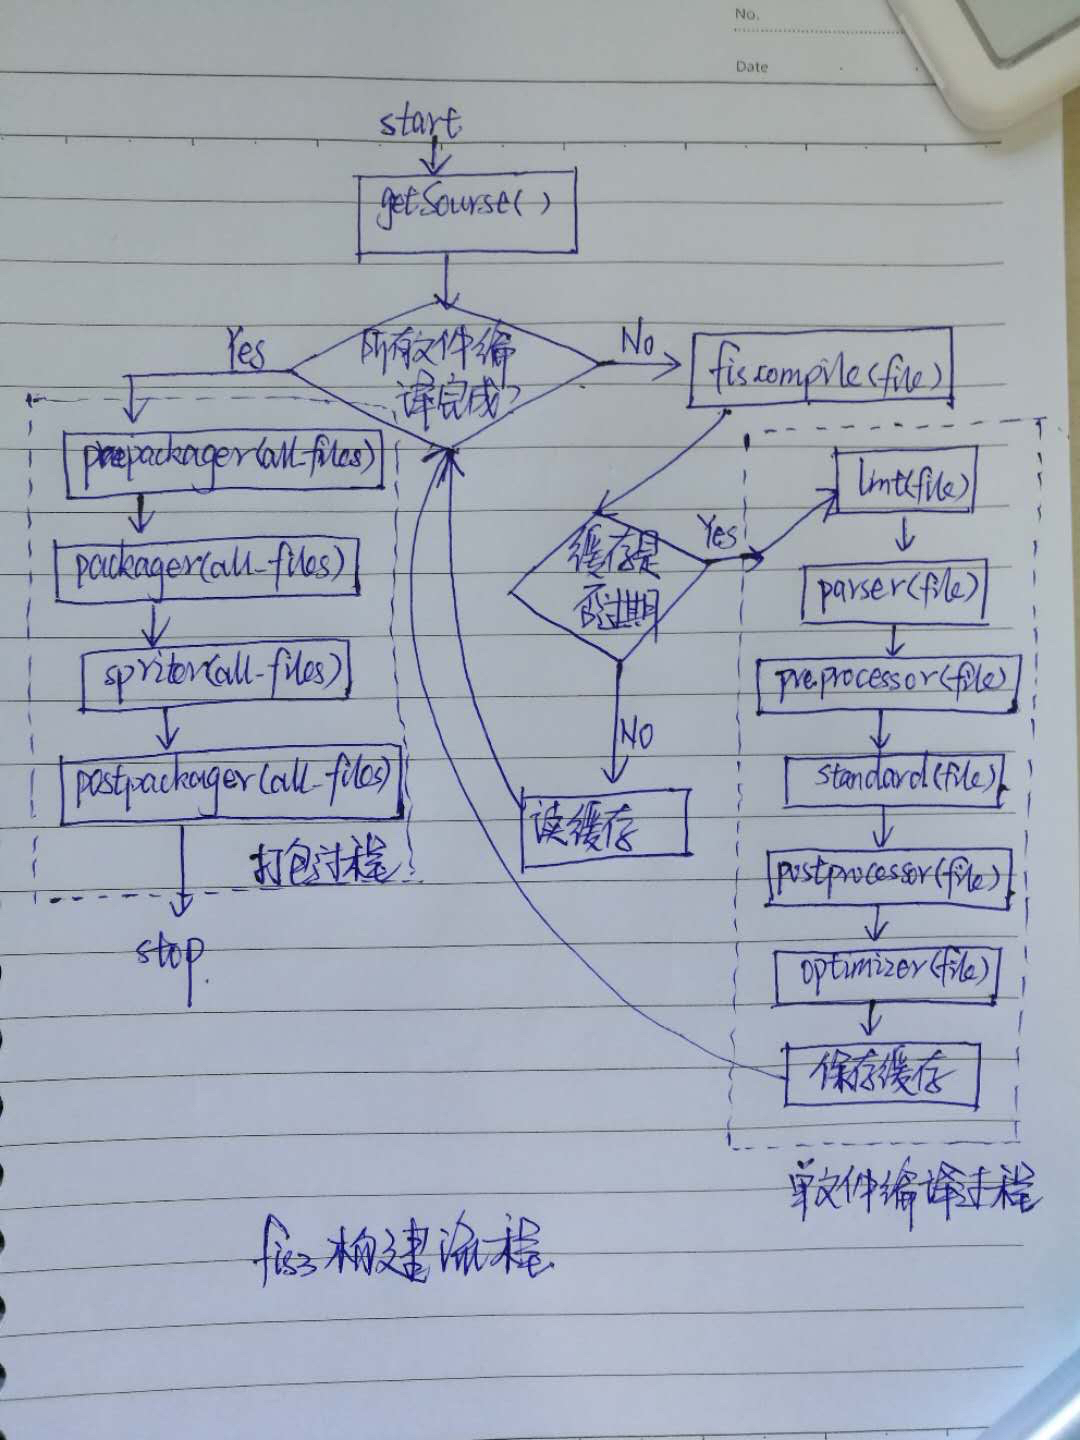 No.
Date
start
getSourse( )
所有文件编
译完成?
Yes
No
fis.compile(file)
prepackager(all-files)
packager(all-files)
spriter(all-files)
postpackager(all-files)
打包过程
stop.
缓存是
否过期
Yes
No
读缓存
lint(file)
parser(file)
preprocessor(file)
standard(file)
postprocessor(file)
optimizer(file)
保存缓存
单文件编译过程
fis3构建流程